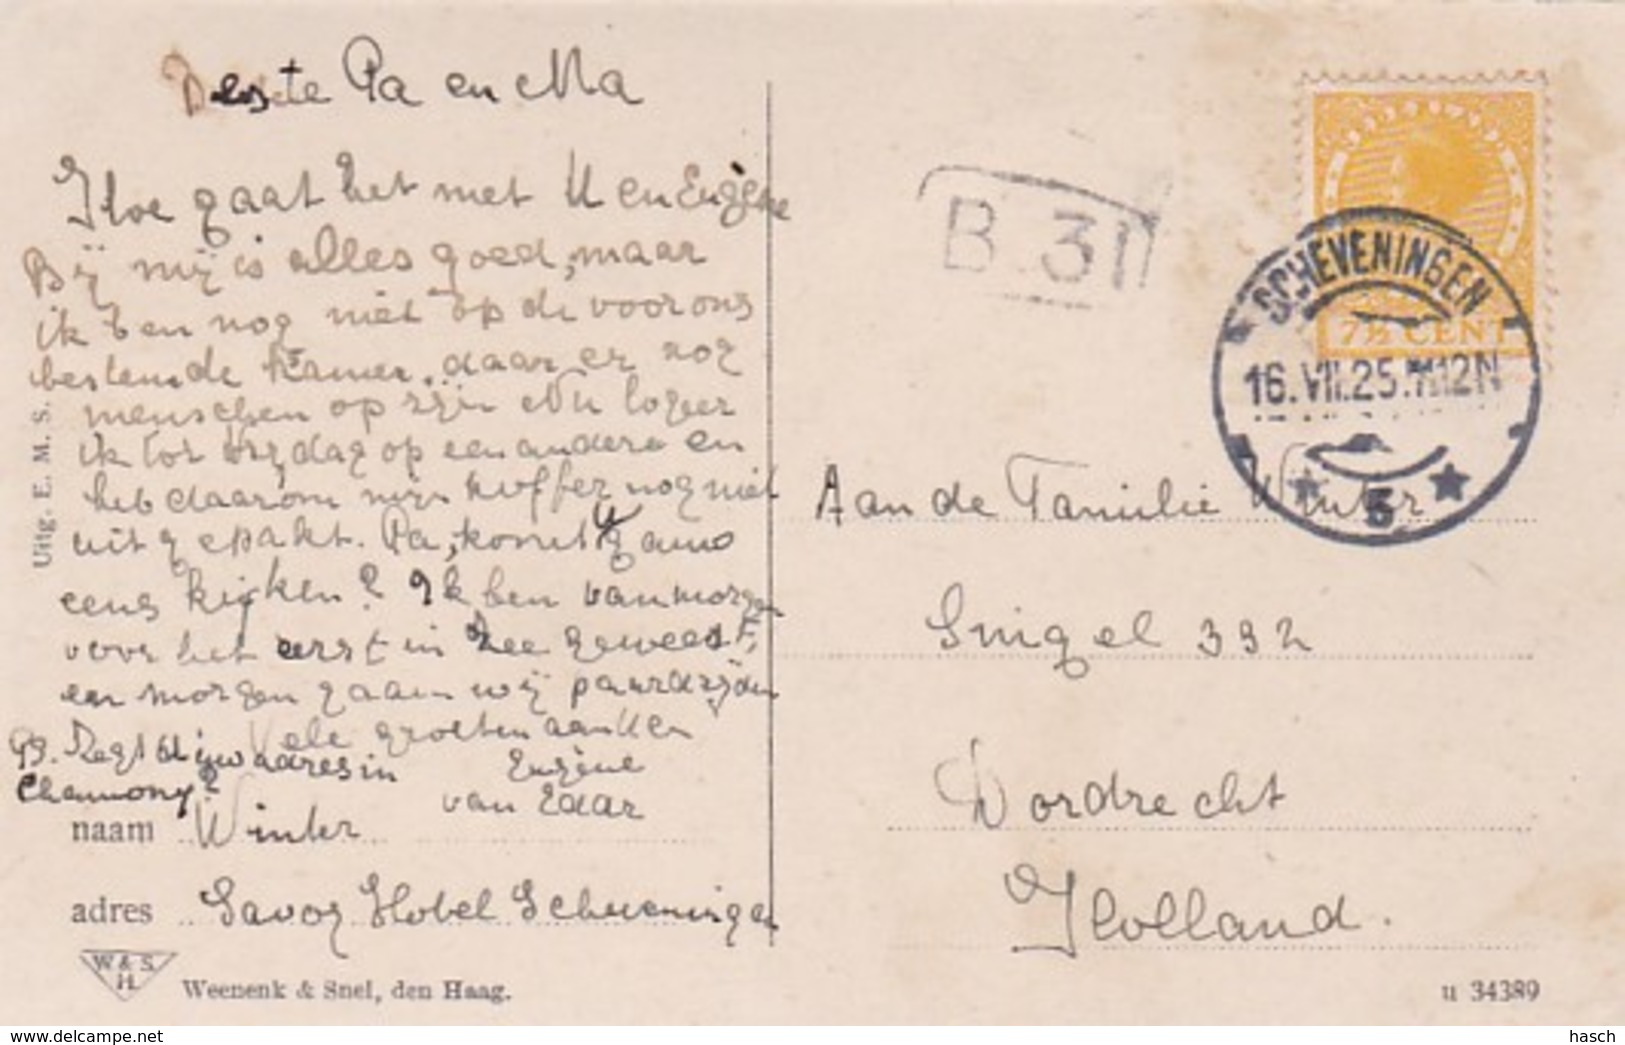 Beste Pa en Ma
Hoe gaat het met U en Eugène
Bij mij is alles goed, maar
ik ben nog niet op de voor ons
bestemde kamer, daar er nog
menschen op zijn Nu logeer
ik tot vrijdag op een andere en
heb daarom mijn koffer nog niet
uitgepakt. Pa, komt U gauw
eens kijken? Ik ben vanmorgen
voor het eerst in zee geweest,
en morgen gaan wij paardrijden
Vele groeten aan Uen
PS. Zegt U adres in
Chamony?
Eugène
van Edar
naam Winter
adres Savoy Hotel Scheveningen
Uitg. E. M. S.
W & S.
H.
Weenenk & Snel, den Haag.
B. 31
7½ CENT
SCHEVENINGEN
16.VII.25. 12N
5
Aan de Familie Winter
Singel 332
Dordrecht
Holland.
u 34389
www.delcampe.net
hasch